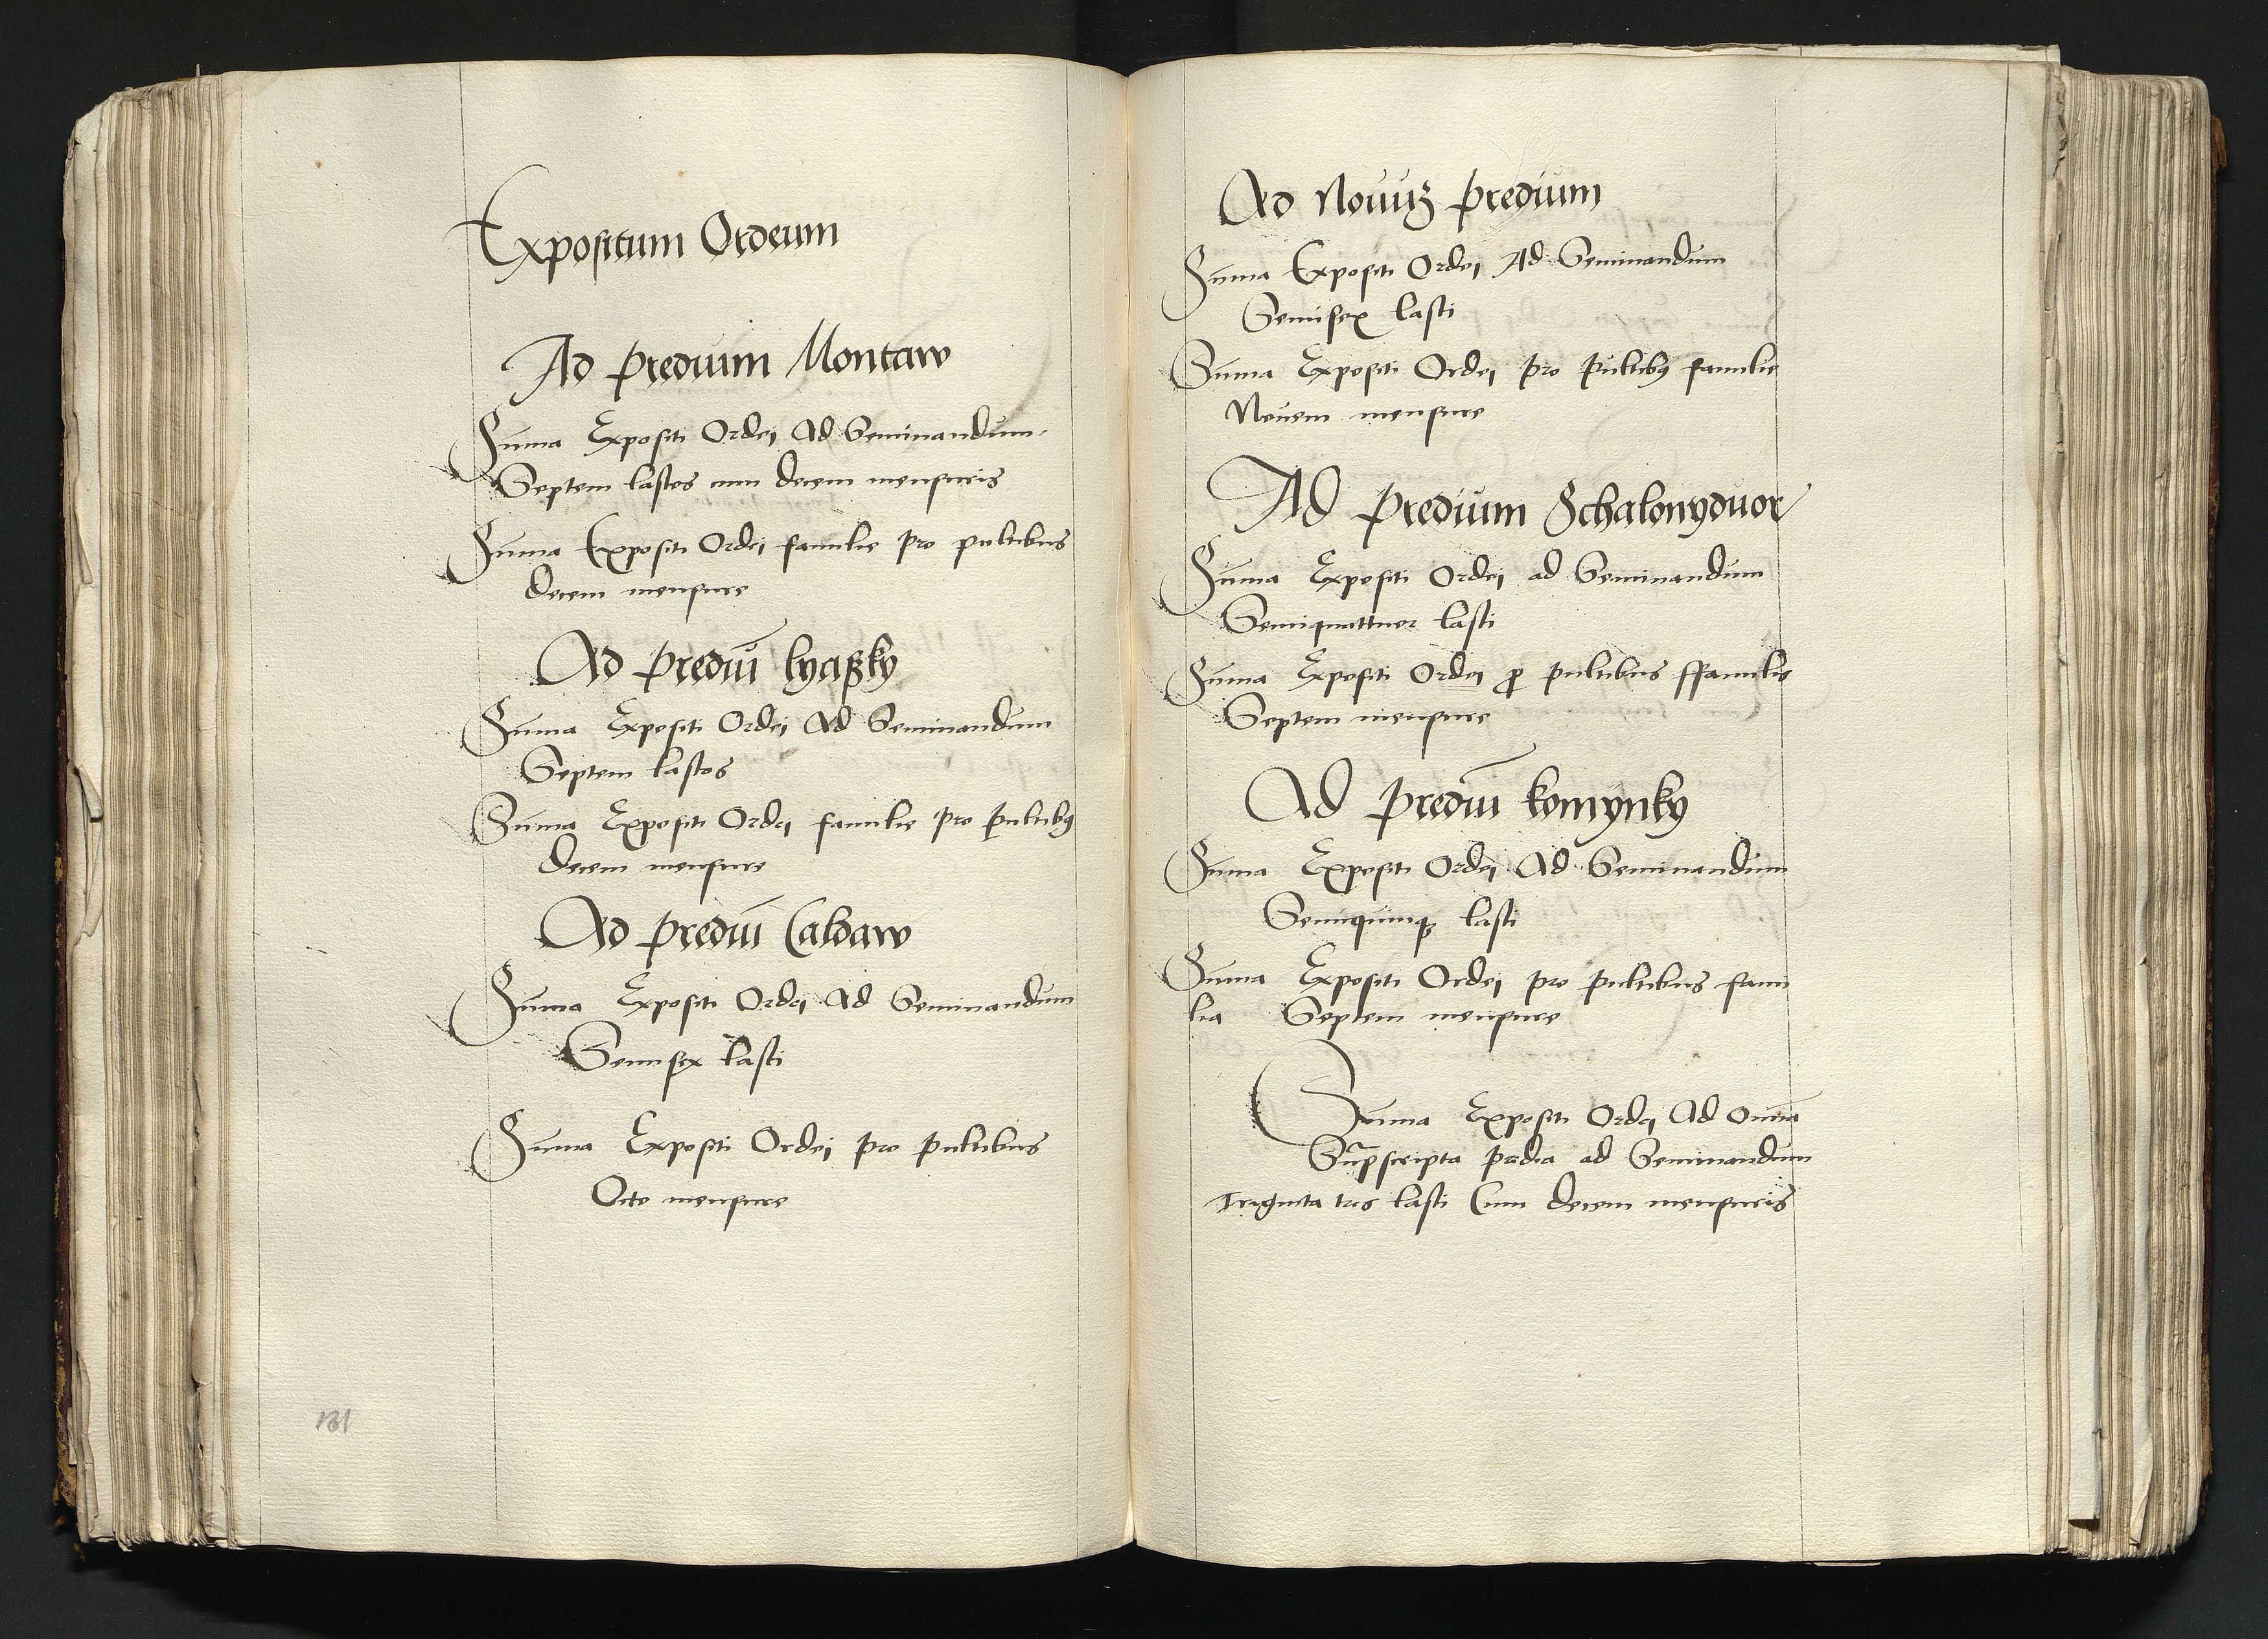 Expositum Ordeum
Ad predium Montaw
Suma Expositi Ordei Ad Seminandum
Septem lastos cum decem mensuris
Suma Expositi Ordei familie pro pultibus
decem mensure
Ad prediū lyciszky
Suma Expositi Ordei Ad Seminandum
Septem lastos
Suma Expositi Ordei familie pro pultibꝰ
decem mensure
Ad prediū Caldaw
Suma Expositi Ordei Ad Seminandum
Semisex lasti
Suma Expositi Ordei pro pultibus
Octo mensure
131
Ad Nouuȝ predium
Suma Expositi Ordei Ad Seminandum
Semisex lasti
Suma Expositi Ordei pro pultibꝰ familie
Nouem mensure
Ad predium Schalonyduor
Suma Expositi Ordei ad Seminandum
Semiquattuor lasti
Suma Expositi Ordei ꝓ pultibus ffamilie
Septem mensure
Ad prediū komynky
Suma Expositi Ordei Ad Seminandum
Semiquinqꝫ lasti
Suma Expositi Ordei pro pultibus fami
lia Septem mensure
Suma Expositi Ordei Ad omnia
Supscripta predia ad Seminandum
Triginta tres lasti Cum decem mensuris